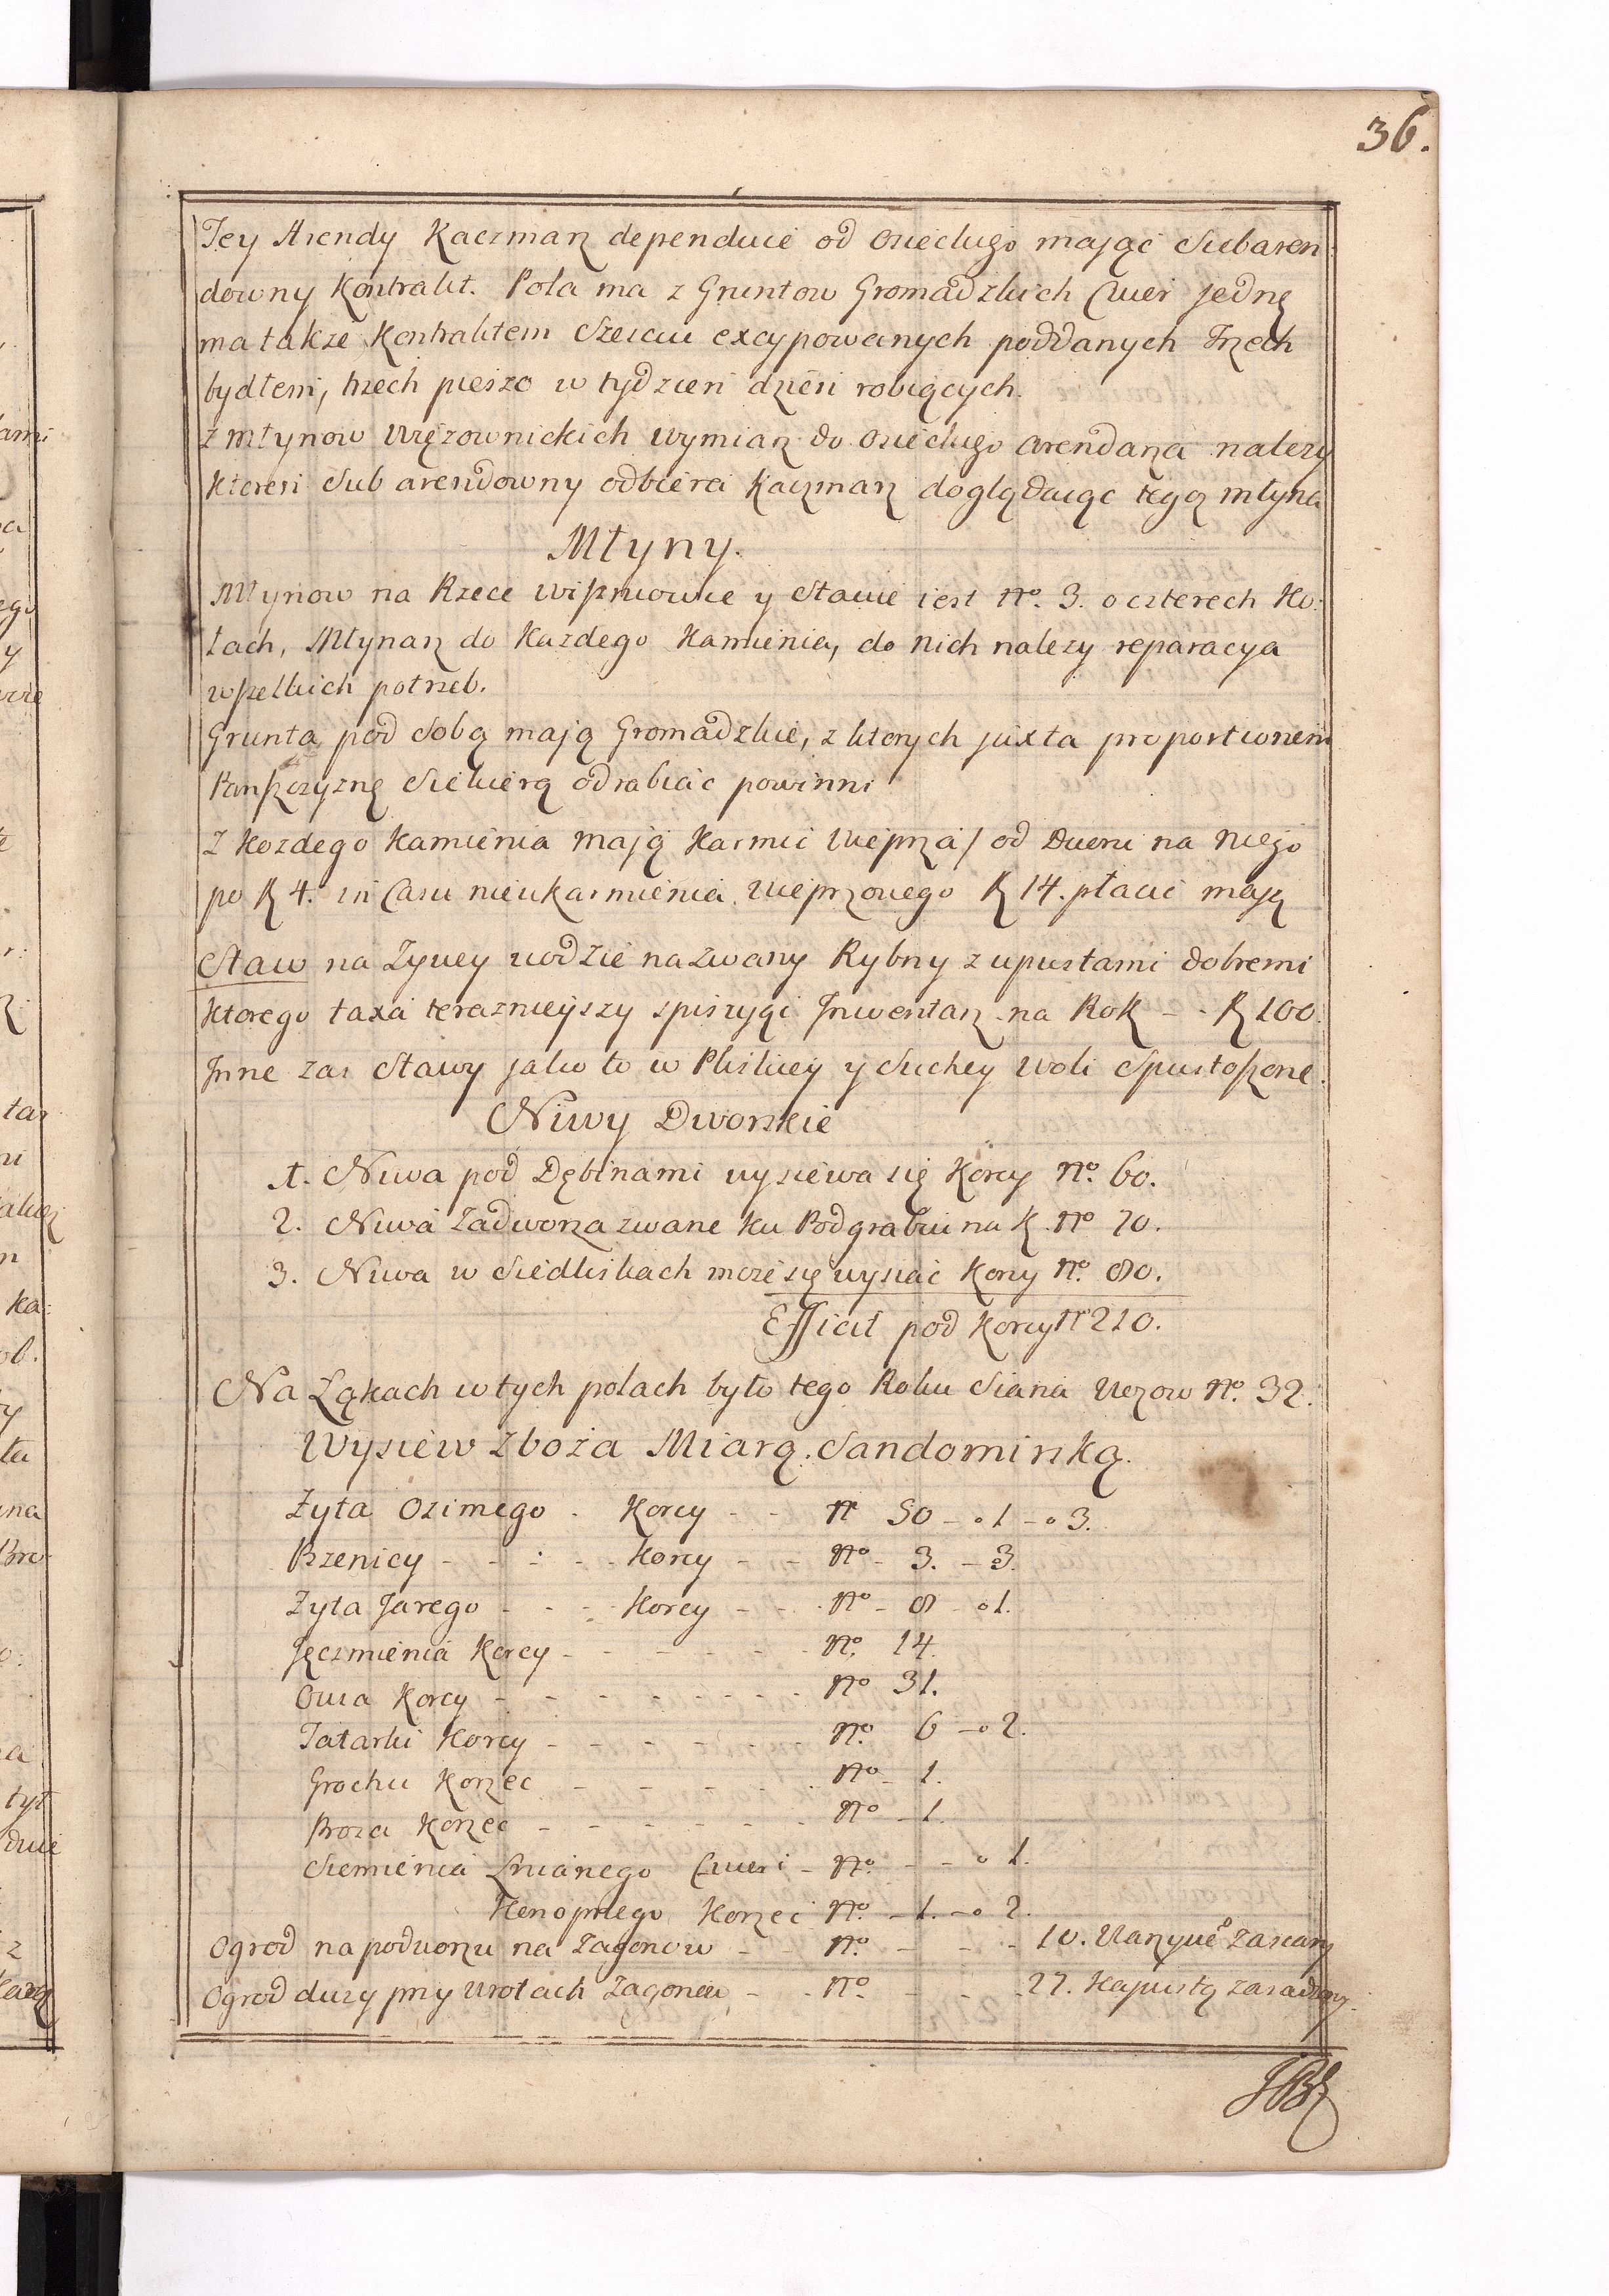 36.
Tey Arendy Kaczmarz dependuie od osieckiego mając Subaren:
downy Kontrakt. Pola ma z Gruntow Gromadzkich Cwier jednę
ma także Kontraktem Szesciu excypowanych poddanych Trzech
bydłem, trzech pieszo w tydzień dzień robiących.
z młynow Wężownickich wymiar do osieckiego arendarza nalezy
Ktoren Sub arendowny odbiera Kaczmarz doglądaiąc tego młyna
Młyny.
Młynow na Rzece Wisznowce y Stawie iest No. 3. o czterech Ko:
łach, Młynarz do Kazdego Kamienia, do nich nalezy reparacya
wszelkich potrzeb.
Grunta pod Sobą mają Gromadzkie, z ktorych juxta proportionem
Panszczyznę Siekierą odrabiać powinni
Z Kozdego Kamienia mają Karmić Wieprza / od Dworu na niego
po K 4. in Casu nieukarmienia Wieprzowego R 14. płacić mają
Staw na Zywey wodzie nazwany Rybny z upustami dobremi
Ktorego taxa terazniejszy spisuiąci Inwentarz na Rok - - R 100.
Inne zas Stawy jako to w Pliskiey y Suchey Woli Spustoszone.
Niwy Dworskie
1. Niwa pod Dębinami wysiewa się Korcy No. 60.
2. Niwa Zadworza zwane ku Podgrabiu na K. No 70.
3. Niwa w Siedliskach moze się wysiać Korcy No. 80.
Efficit pod Korcy N 210.
Na Łąkach w tych polach było tego Roku Siana Wozow No. 32.
Wysiew Zboża Miarą Sandomirską.
Zyta Ozimego . Korcy - - N 50 - o 1 - o 3.
Pszenicy - - - - Korcy - - No - 3. - 3.
Zyta Jarego - - - Korcy - - No - 8 - o 1.
Jęczmienia Korcy - - - - - - No. 14.
Owsa Korcy - - - - - - - No 31.
Tatarki Korcy - - - - - - No. 6 - o 2.
Grochu Korzec - - - - - No - 1.
Prosa Korzec - - - - - - No - 1.
Siemienia Lnianego Cwierć - No. - - o 1.
Konopnego Korzec No. - 1. - o 2.
Ogrod na podworzu na Zagonow - - No. - - - 10. Warzywo Zasiany
Ogrod duzy przy wrotach Zagonow - - No. - - - 27. Kapustą zasadzony.